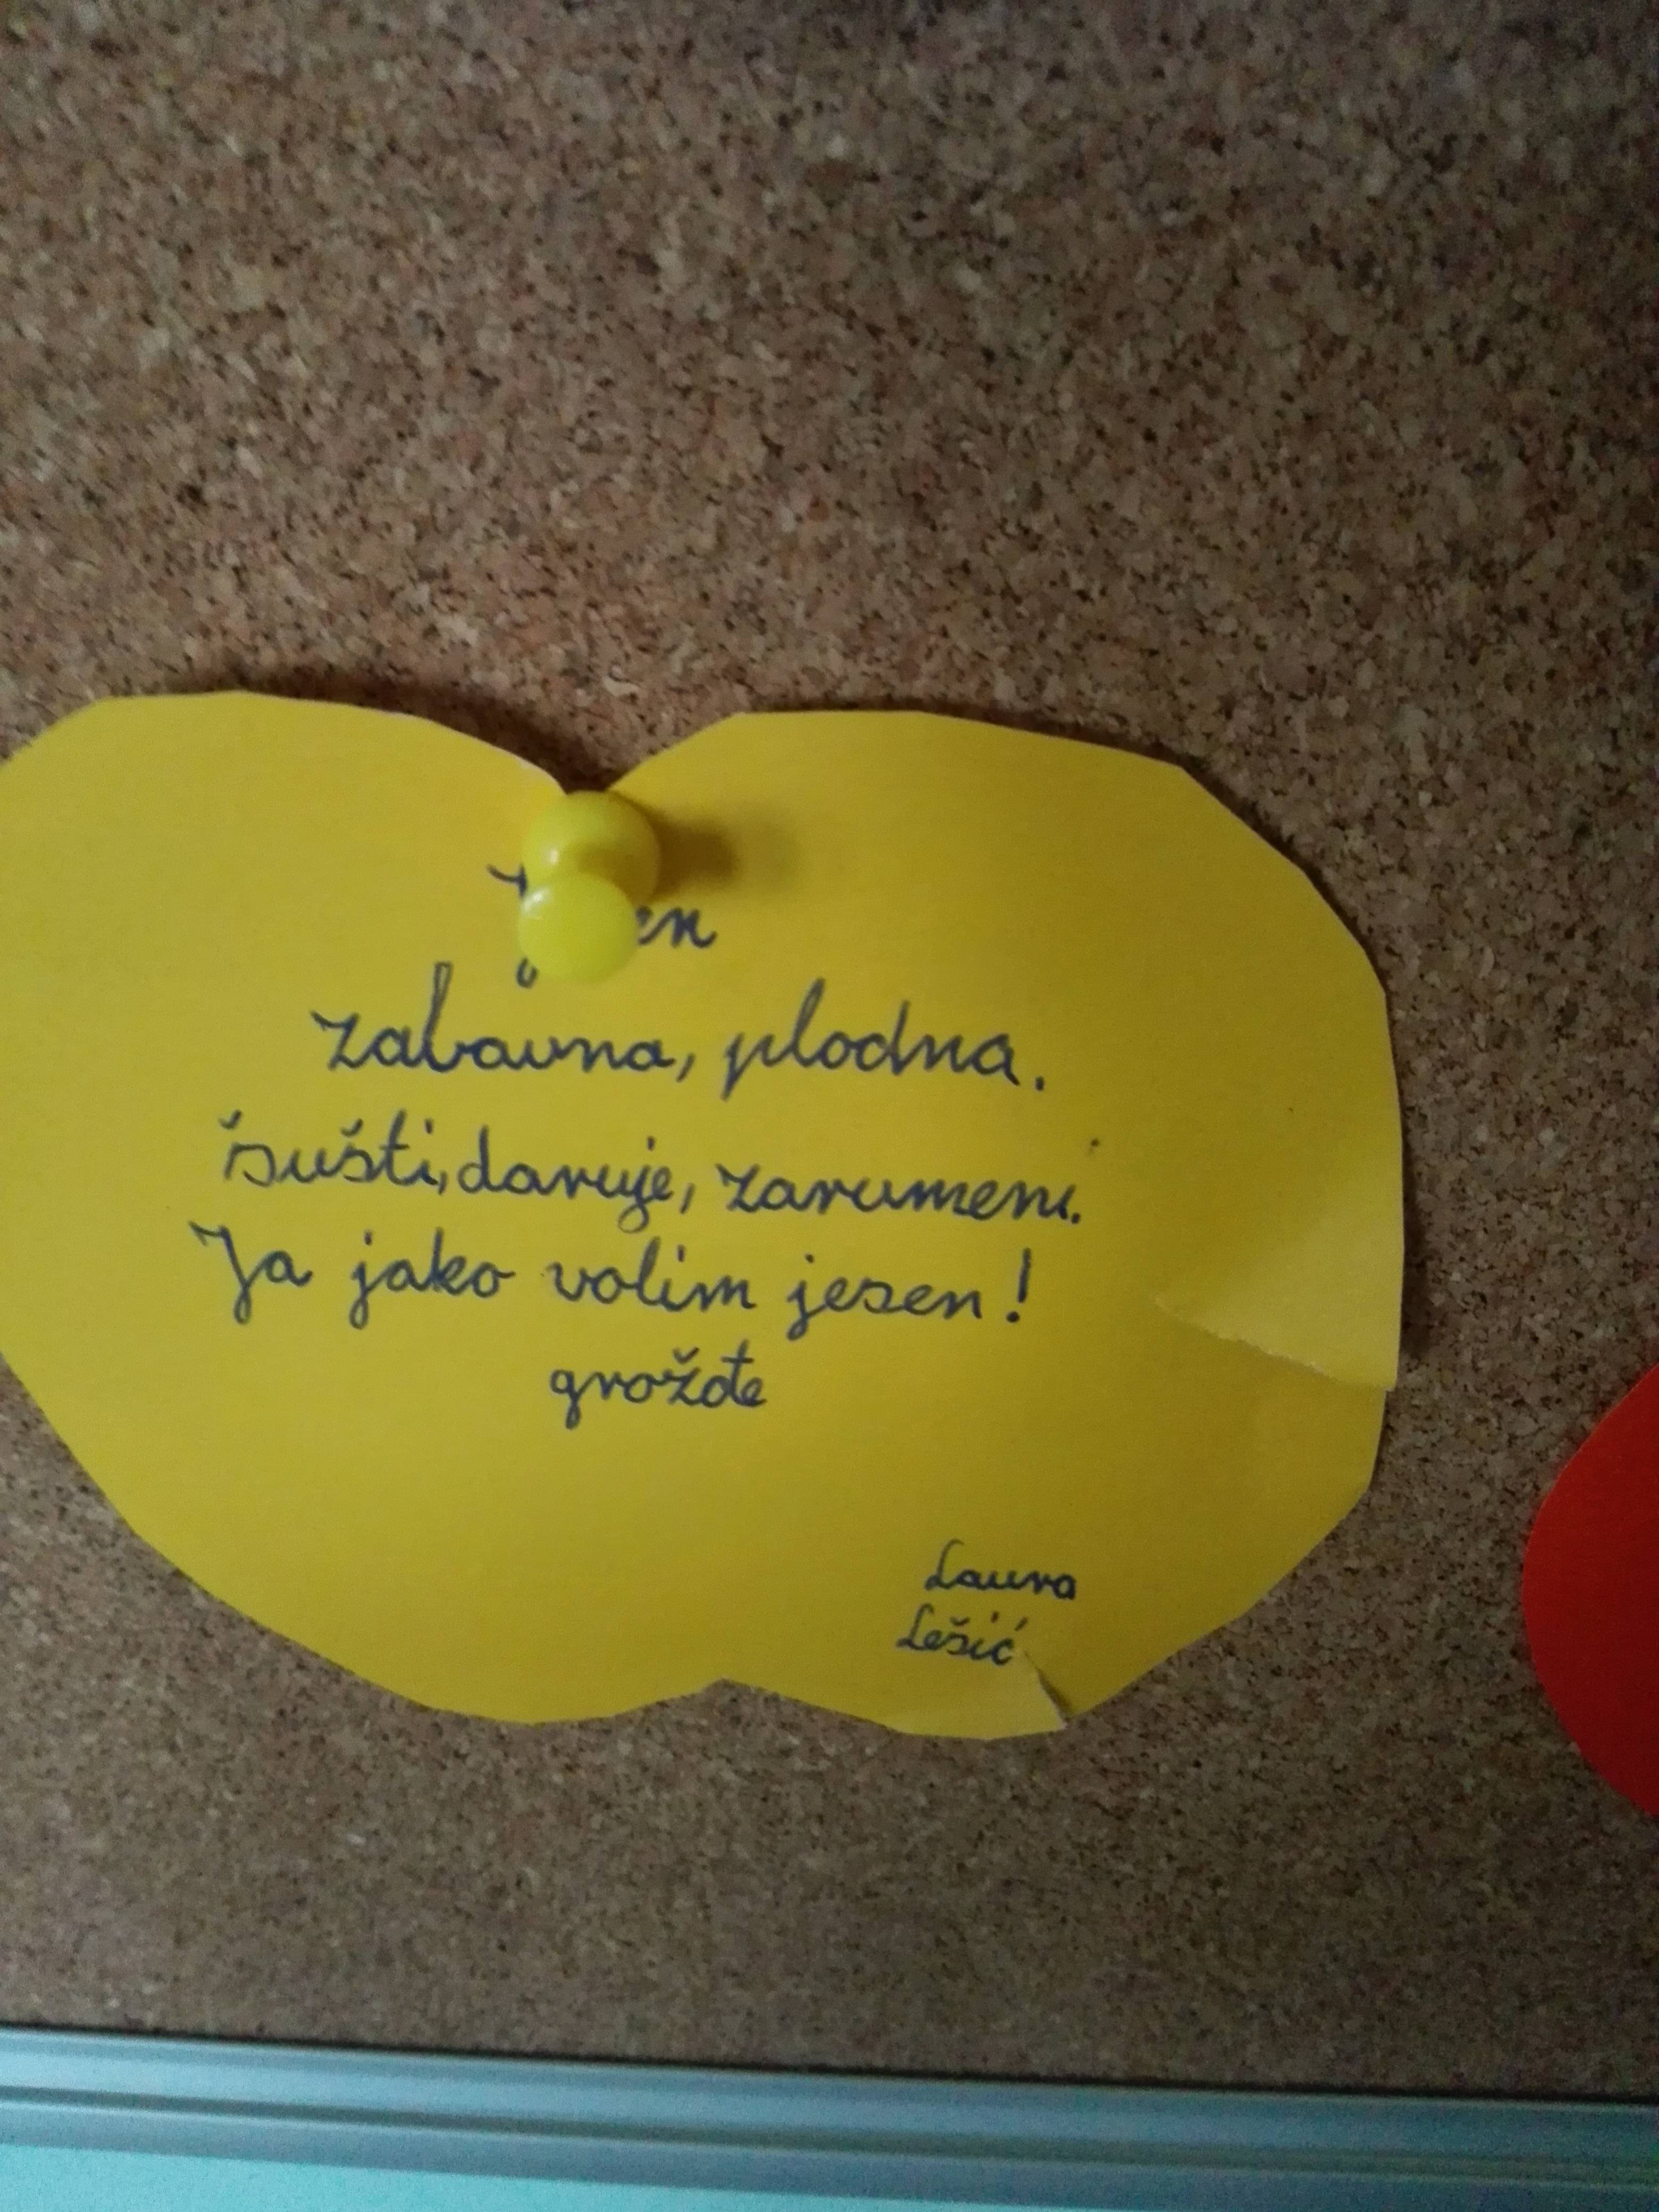 zabavna, plodna.
šušti, daruje, zarumeni.
Ja jako volim jesen!
grožđe
Laura
Lešić